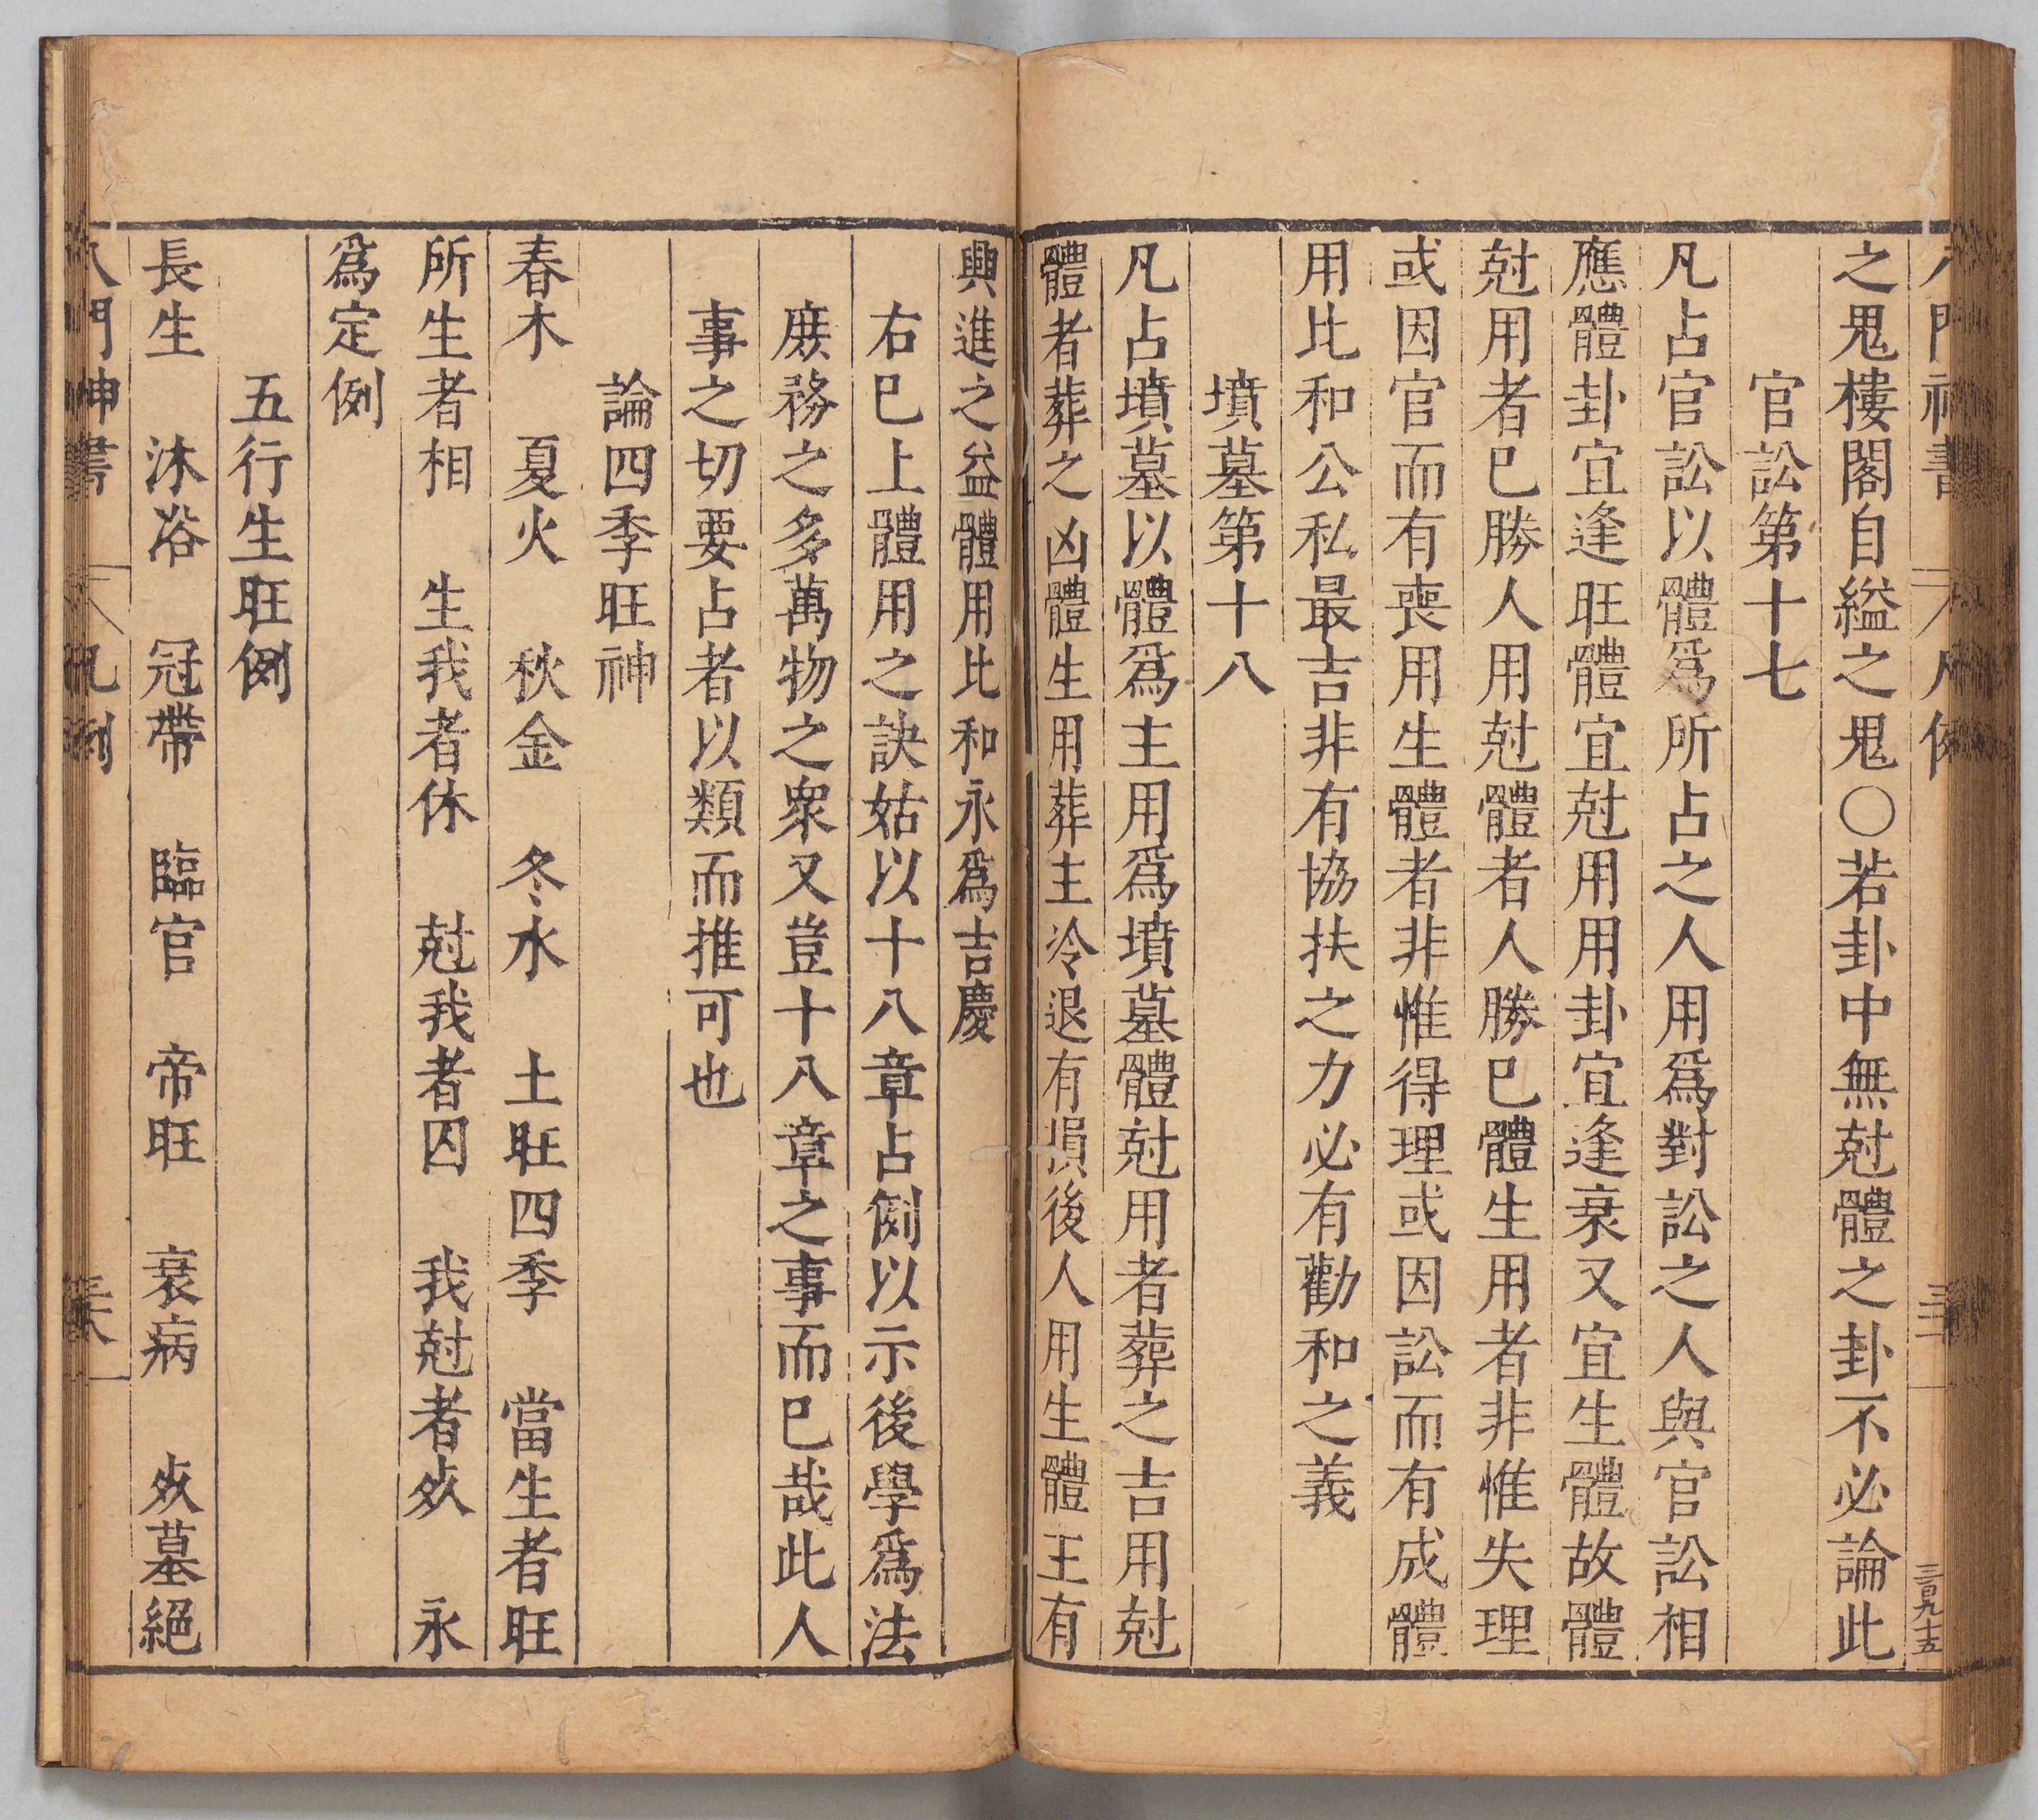 之鬼樓閣自縊之鬼○若卦中無尅體之卦不必論此
官訟第十七
凡占官訟以體爲所占之人用爲對訟之人與官訟相
應體卦宜逢旺體宜尅用用卦宜逢衰又宜生體故體
尅用者巳勝人用尅體者人勝巳體生用者非惟失理
或因官而有喪用生體者非惟得理或因訟而有成體
用比和公私最吉非有協扶之力必有勸和之義
墳墓第十八
凡占墳墓以體爲主用爲墳墓體尅用者葬之吉用尅
體者葬之凶體生用葬主冷退有損後人用生體王有
興進之益體用比和永爲吉慶
右巳上體用之訣姑以十八章占例以示後學爲法
庶務之多萬物之衆又豈十八章之事而巳哉此人
事之切要占者以類而推可也
論四季旺神
春木 夏火 秋金 冬水 土旺四季 當生者旺
所生者相 生我者休 尅我者囚 我尅者死 永
爲定例
五行生旺例
長生 沐浴 冠帶 臨官 帝旺 衰病 死墓絕
三百九十五